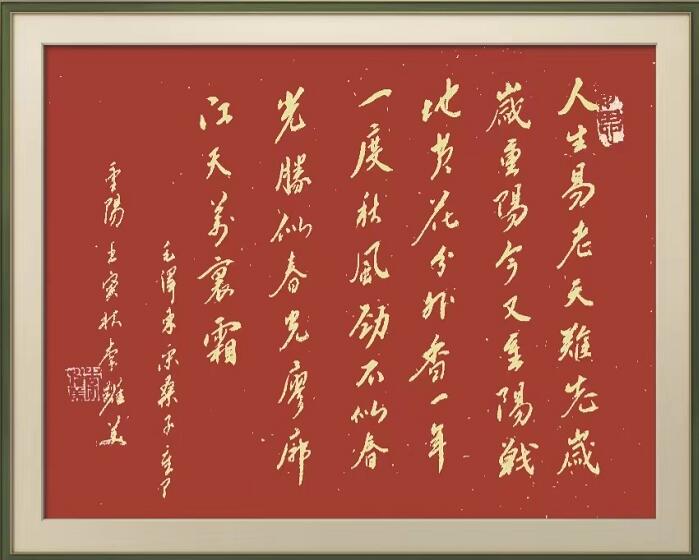 人生易老天難老歲
歲重陽今又重陽戰
地黄花分外香一年
一度秋風勁不似春
光勝似春光廖廓
江天萬裏霜
毛澤東采桑子
重陽壬寅秋